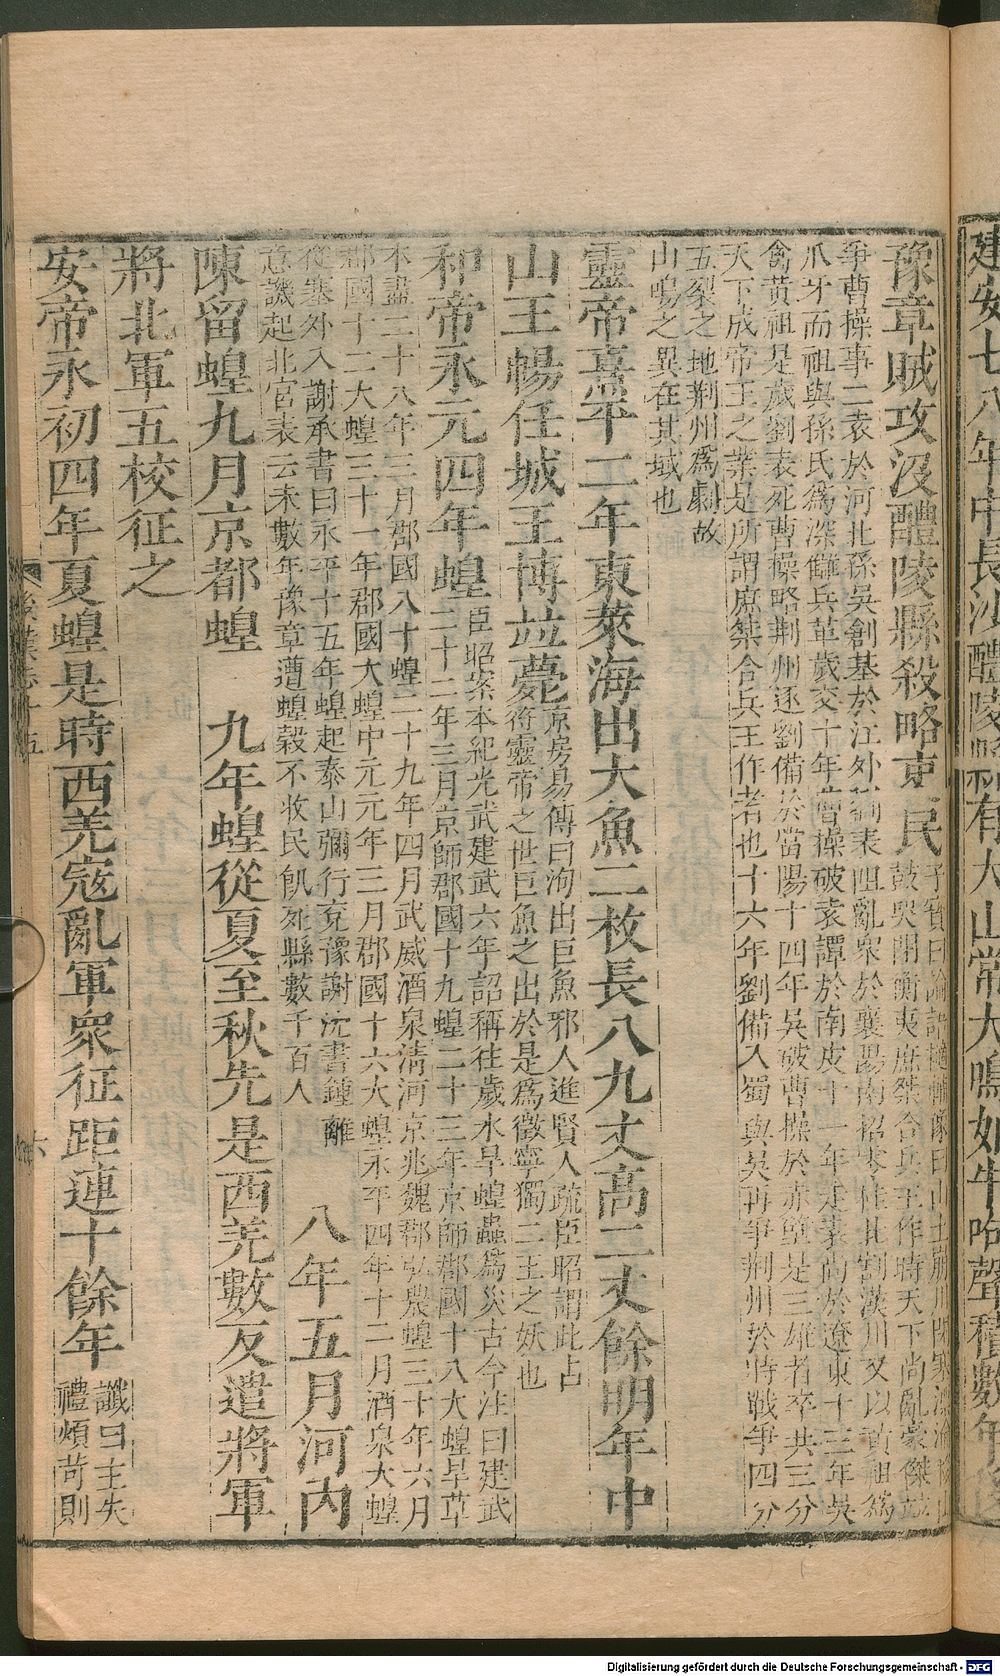 建安七八年中長沙醴陵縣有大山常大鳴如牛呴聲積數年後
豫章賊攻沒醴陵縣殺略吏民
干寶曰論語摘輔像曰山土崩川閉塞漂淪移山
鼓哭閉衡夷庶桀合兵王作時天下尚亂豪傑並
爭曹操事二袁於河北孫吳創基於江外劉表阻亂衆於襄陽南招零桂北割漢川又以黃祖爲
爪牙而祖與孫氏爲深讎兵革歲交十年曹操破袁譚於南皮十一年走袁尚於遼東十三年吳
禽黃祖是歲劉表死曹操略荆州逐劉備於當陽十四年吳破曹操於赤壁是三雄者卒共三分
天下成帝王之業是所謂庶桀合兵王作者也十六年劉備入蜀與吳再爭荆州於時戰爭四分
五裂之地荆州爲劇故
山鳴之異在其域也
靈帝熹平二年東萊海出大魚二枚長八九丈高二丈餘明年中
山王暢任城王博並薨
京房易傳曰海出巨魚邪人進賢人疏臣昭謂此占
符靈帝之世巨魚之出於是爲徵寧獨二王之妖也
和帝永元四年蝗
臣昭案本紀光武建武六年詔稱往歲水旱蝗蟲爲災古今注曰建武
二十二年三月京師郡國十九蝗二十三年京師郡國十八大蝗旱草
木盡二十八年三月郡國八十蝗二十九年四月武威酒泉清河京兆魏郡弘農蝗三十年六月
郡國十二大蝗三十一年郡國大蝗中元元年三月郡國十六大蝗永平四年十二月酒泉大蝗
從塞外入謝承書曰永平十五年蝗起泰山彌行兗豫謝沈書鍾離
意譏起北宮表云未數年豫章遭蝗穀不收民飢死縣數千百人
八年五月河內
陳留蝗九月京都蝗 九年蝗從夏至秋先是西羌數反遣將軍
將北軍五校征之
安帝永初四年夏蝗是時西羌寇亂軍衆征距連十餘年
讖曰主失
禮煩苛則
六
Digitalisierung gefördert durch die Deutsche Forschungsgemeinschaft - DFG